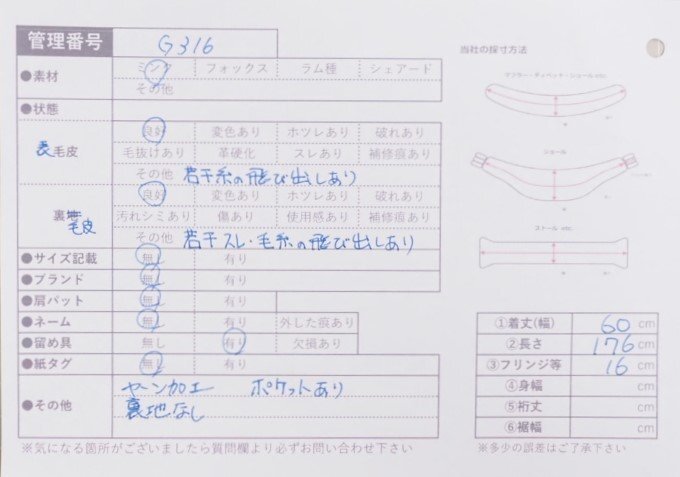 管理番号 G316
当社の採寸方法
●素材 ミンク フォックス ラム種 シェアード
その他
●状態
表毛皮 良好 変色あり ホツレあり 破れあり
毛抜けあり 革硬化 スレあり 補修痕あり
その他 若干糸の飛び出しあり
裏地 毛皮 良好 変色あり ホツレあり 破れあり
汚れシミあり 傷あり 使用感あり 補修痕あり
その他 若干スレ・毛糸の飛び出しあり
●サイズ記載 無し 有り
●ブランド 無し 有り
●肩パット 無し 有り
●ネーム 無し 有り 外した痕あり
●留め具 無し 有り 欠損あり
●紙タグ 無し 有り
●その他 ヤーン加工 ポケットあり
裏地なし
※気になる箇所がございましたら質問欄より必ずお問い合わせ下さい
マフラー・ティペット・ショール etc.
ショール
ストール etc.
①着丈(幅) 60 cm
②長さ 176 cm
③フリンジ等 16 cm
④身幅 cm
⑤裄丈 cm
⑥裾幅 cm
※多少の誤差はご了承下さい